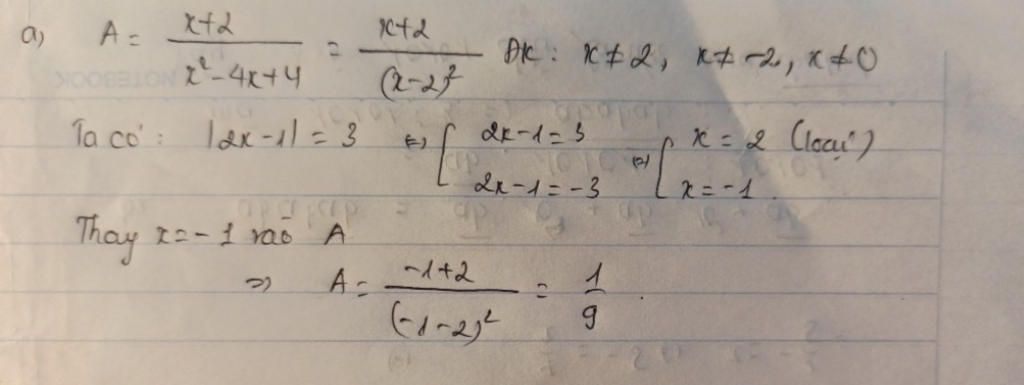 a) A = x+2 / x²-4x+4 = x+2 / (x-2)² ĐK: x ≠ 2, x ≠ -2, x ≠ 0
Ta có: |2x-1| = 3 ⇔ [ 2x-1 = 3 ⇔ [ x = 2 (loại)
2x-1 = -3 x = -1.
Thay x = -1 vào A
⇒ A = -1+2 / (-1-2)² = 1/9.